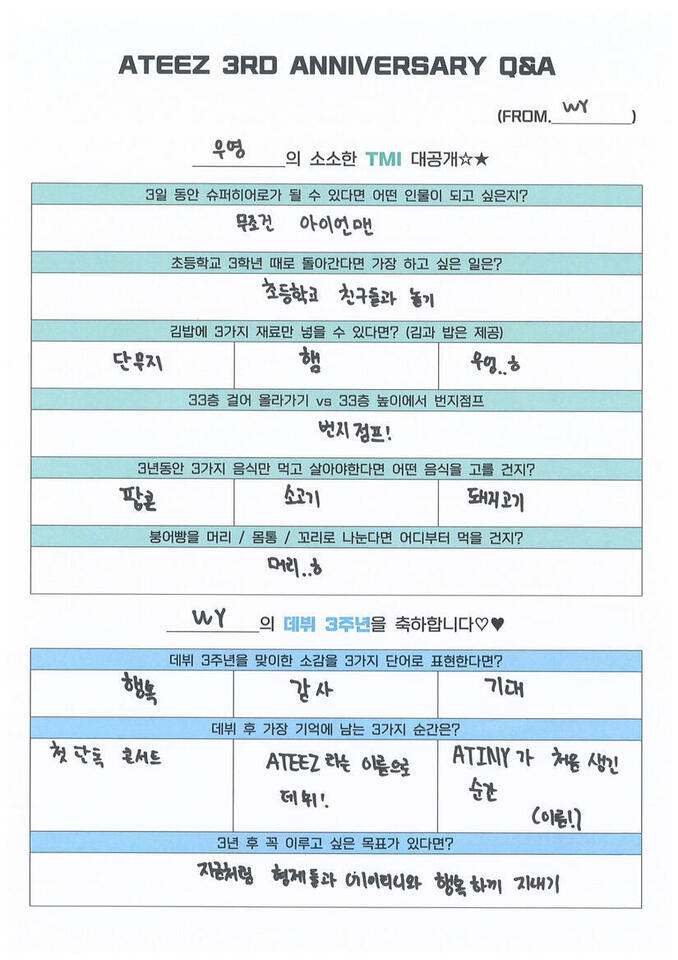 ATEEZ 3RD ANNIVERSARY Q&A
(FROM. WY )
우영의 소소한 TMI 대공개☆★
3일 동안 슈퍼히어로가 될 수 있다면 어떤 인물이 되고 싶은지?
무조건 아이언맨
초등학교 3학년 때로 돌아간다면 가장 하고 싶은 일은?
초등학교 친구들과 놀기
김밥에 3가지 재료만 넣을 수 있다면? (김과 밥은 제공)
단무지 햄 우영..ㅎ
33층 걸어 올라가기 vs 33층 높이에서 번지점프
번지점프!
3년동안 3가지 음식만 먹고 살아야한다면 어떤 음식을 고를 건지?
팝콘 소고기 돼지고기
붕어빵을 머리 / 몸통 / 꼬리로 나눈다면 어디부터 먹을 건지?
머리..ㅎ
WY의 데뷔 3주년을 축하합니다♡♥
데뷔 3주년을 맞이한 소감을 3가지 단어로 표현한다면?
행복 감사 기대
데뷔 후 가장 기억에 남는 3가지 순간은?
첫 단독 콘서트
ATEEZ 라는 이름으로
데뷔!
ATINY가 처음 생긴
순간
(이름!)
3년 후 꼭 이루고 싶은 목표가 있다면?
지금처럼 형제들과 에이티니와 행복하게 지내기